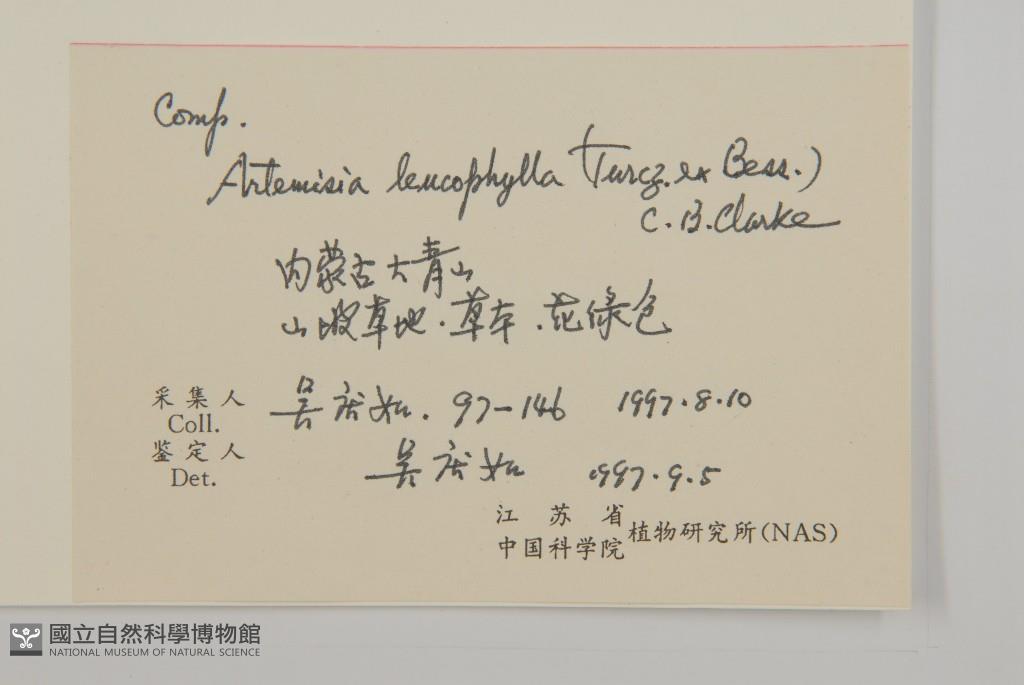 Comp.
Artemisia leucophylla (Turcz. ex Bess.)
C. B. Clarke
内蒙古大青山
山坡草地.草本.花绿色
采集人 吴庆如. 97-146 1997.8.10
Coll.
鉴定人 吴庆如 1997.9.5
Det.
江苏省
中国科学院 植物研究所(NAS)
國立自然科學博物館
NATIONAL MUSEUM OF NATURAL SCIENCE